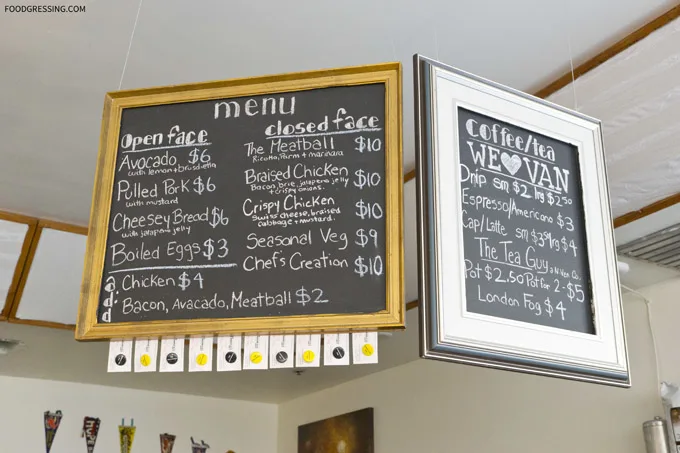 FOODGRESSING.COM
menu
Open face
Avocado $6
with lemon + bruschetta
Pulled Pork $6
with mustard
Cheesey Bread $6
with jalapeno jelly
Boiled Eggs $3
closed face
The Meatball $10
Ricotta, Parm + marinara
Braised Chicken $10
Bacon, brie, jalapeno jelly
+ crispy onions.
Crispy Chicken $10
Swiss cheese, braised
cabbage + mustard.
Seasonal Veg $9
Chef's Creation $10
add:
Chicken $4
Bacon, Avacado, Meatball $2
Coffee/tea
WE VAN
Drip sm $2 lrg $2.50
Espresso/Americano $3
Cap/Latte sm $3.50 lrg $4
The Tea Guy
Pot $2.50 Pot for 2 - $5
London Fog $4